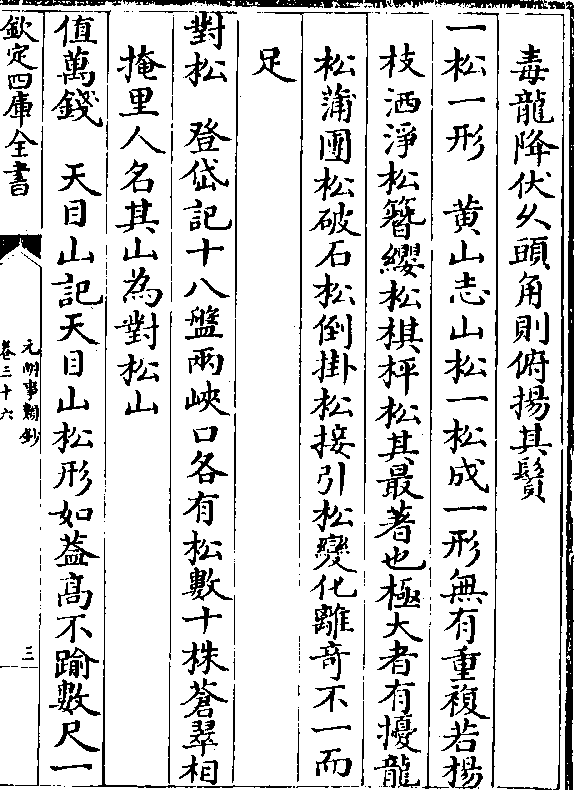 毒龍降伏久頭角則俯揚其鬚
一松一形　黄山志山松一松成一形無有重複若揚
枝洒淨松簪纓松棋枰松其最著也極大者有擾龍
松蒲團松破石松倒掛松接引松變化離竒不一而
足
對松　登岱記十八盤兩峽口各有松數十株蒼翠相
掩里人名其山為對松山
值萬錢　天目山記天目山松形如葢髙不踰數尺一
欽定四庫全書
元明事類鈔
卷三十六
三